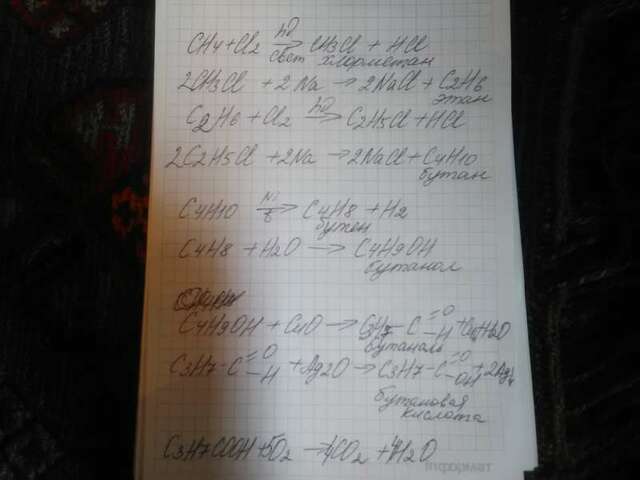 CH4 + Cl2 hν→ CH3Cl + HCl
свет хлорметан
2CH3Cl + 2Na → 2NaCl + C2H6
этан
C2H6 + Cl2 hν→ C2H5Cl + HCl
2C2H5Cl + 2Na → 2NaCl + C4H10
бутан
C4H10 Ni t→ C4H8 + H2
бутен
C4H8 + H2O → C4H9OH
бутанол
C4H9OH + CuO → C3H7 - C =O -H + Cu + H2O
бутаналь
C3H7 - C =O -H + Ag2O → C3H7 - C =O -OH + 2Ag↓
бутановая
кислота
C3H7COOH + 5O2 → 4CO2 + 4H2O
информат